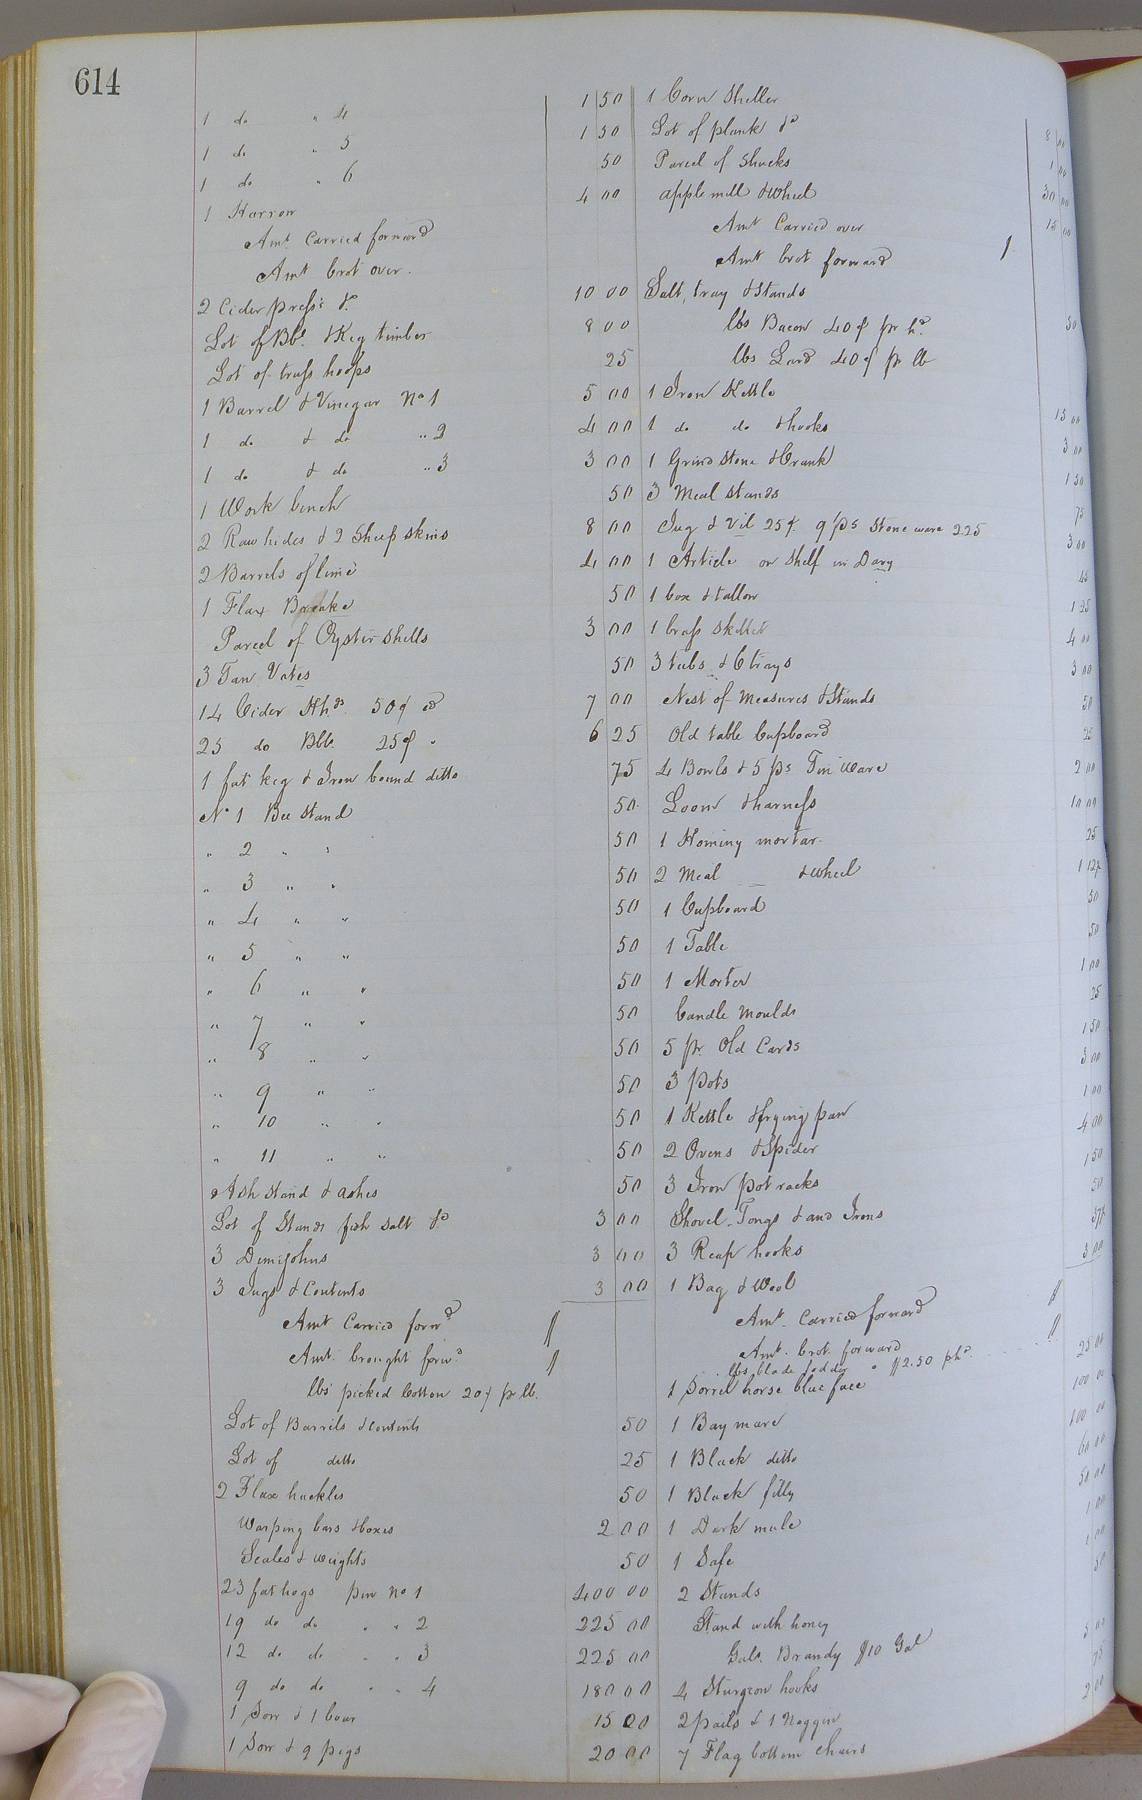 614
1 do " 4 1 50
1 do " 5 1 50
1 do " 6 50
1 Harrow 4 00
Amt. Carried forward
Amt brot over.
2 Cider press &c 10 00
Lot of Bbl & Keg timber 8 00
Lot of truss hoops 25
1 Barrel & Vinegar No 1 5 00
1 do & do " 2 4 00
1 do & do " 3 3 00
1 Work bench 50
2 Raw hides & 2 Sheep skins 8 00
2 Barrels of lime 4 00
1 Flax Breake 50
Parcel of Oyster shells 3 00
3 Tan Vates 50
14 Cider Hhds 50¢ 7 00
25 do Bbls. 25¢ " 6 25
1 fat keg & Iron bound ditto 75
No 1 Bee Stand 50
" 2 " " 50
" 3 " " 50
" 4 " " 50
" 5 " " 50
" 6 " " 50
" 7 " " 50
" 8 " " 50
" 9 " " 50
" 10 " " 50
" 11 " " 50
Ash Stand & ashes 50
Lot of Stands fish salt &c 3 00
3 Demijohns 3 00
3 Jugs & Contents 3 00
Amt Carried forwd
Amt. brought forwd
lbs picked Cotton 20¢ pr lb.
Lot of Barrels & contents 50
Lot of ditto 25
2 Flax hackles 50
Warping bars & boxes 2 00
Scales & weights 50
23 fat hogs pen No 1 400 00
19 do do " " 2 225 00
12 do do " " 3 225 00
9 do do " " 4 180 00
1 Sow & 1 boar 15 00
1 Sow & 9 pigs 20 00
1 Corn Sheller
Lot of plank &c 8 00
Parcel of Shucks 1 00
apple mill & wheel 30 00
Amt Carried over
Amt brot forward
Salt, tray & Stands
lbs Bacon 40¢ pr
lbs Lard 40¢ pr lb
1 Iron Kettle 15 00
1 do do & hooks 3 00
1 Grind Stone & Crank 1 50
3 Meal stands 75
Jug & Vil 25¢. 9 ps Stone ware 225
1 Article or Shelf in Dary
1 box & tallow
1 brass Skillet 4 00
3 tubs & 6 trays 3 00
Nest of Measures & Stands 50
Old table Cupboard 25
4 Bowls & 5 ps Tin Ware 2 00
Loom & harness 10 00
1 Hominy mortar. 25
2 Meal & wheel
1 Cupboard 50
1 Table 50
1 Morter 1 00
Candle Moulds 25
5 pr Old Cards 1 50
3 pots 3 00
1 Kettle & frying pan 1 00
2 Ovens & Spider 4 00
3 Iron pot racks 1 50
Shovel, Tongs & and Irons 50
3 Reap hooks
1 Bag & Wool 3 00
Amt. Carried forward
Amt. brot. forward
lbs blade fodder " $2.50 phd
1 Sorrel horse blaz face
1 Bay mare
1 Black ditto
1 Black filly
1 Dark mule
1 Safe
2 Stands
Stand with honey
Gals. Brandy $10 Gal
4 Sturgeon hooks
2 pails & 1 Noggin
7 Flag bottom chairs